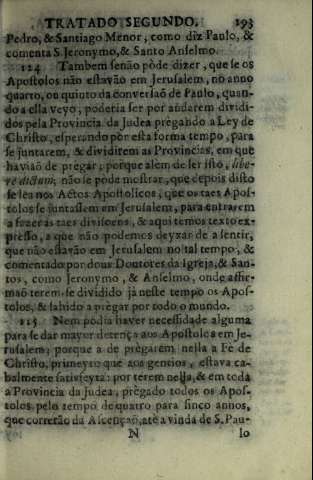 TRATADO SEGUNDO. 193
Pedro, & Santiago Menor, como diz Paulo, &
comenta S. Jeronymo, & Santo Anselmo.
124 Tambem senão pòde dizer, que se os
Apostolos não estavão em Jerusalem, no anno
quarto, ou quinto da conversaõ de Paulo, quan-
do a ella veyo, poderia ser por andarem dividi-
dos pela Provincia da Judea prègando a Ley de
Christo, esperando por esta forma tempo, para
se juntarem, & dividirem as Provincias, em que
haviaõ de prègar; porque alem de ser isto, libe-
re dictum, não se póde mostrar, que depois disto
se lea nos Actos Apostolicos, que os taes Apos-
tolos se juntassem em Jerusalem, para entrarem
a fazer as taes divisoens, & aqui temos texto ex-
presso, a que não podemos deyxar de assentir,
que não estavão em Jerusalem no tal tempo, &
comentado por dous Doutores da Igreja, & San-
tos, como Jeronymo, & Anselmo, onde affir-
maõ terem-se dividido já neste tempo os Apos-
tolos, & sahido a prègar por todo o mundo.
125 Nem podia haver necessidade alguma
para se dar mayor detença aos Apostolos em Je-
rusalem; porque a de prègarem nella a Fè de
Christo, primeyro que aos gentios, estava ca-
balmente satisfeyta: por terem nella, & em toda
a Provincia da Judea, prègado todos os Apos-
tolos pelo tempo de quatro para sinco annos,
que correrão da Ascençaõ, até a vinda de S. Pau-
N lo